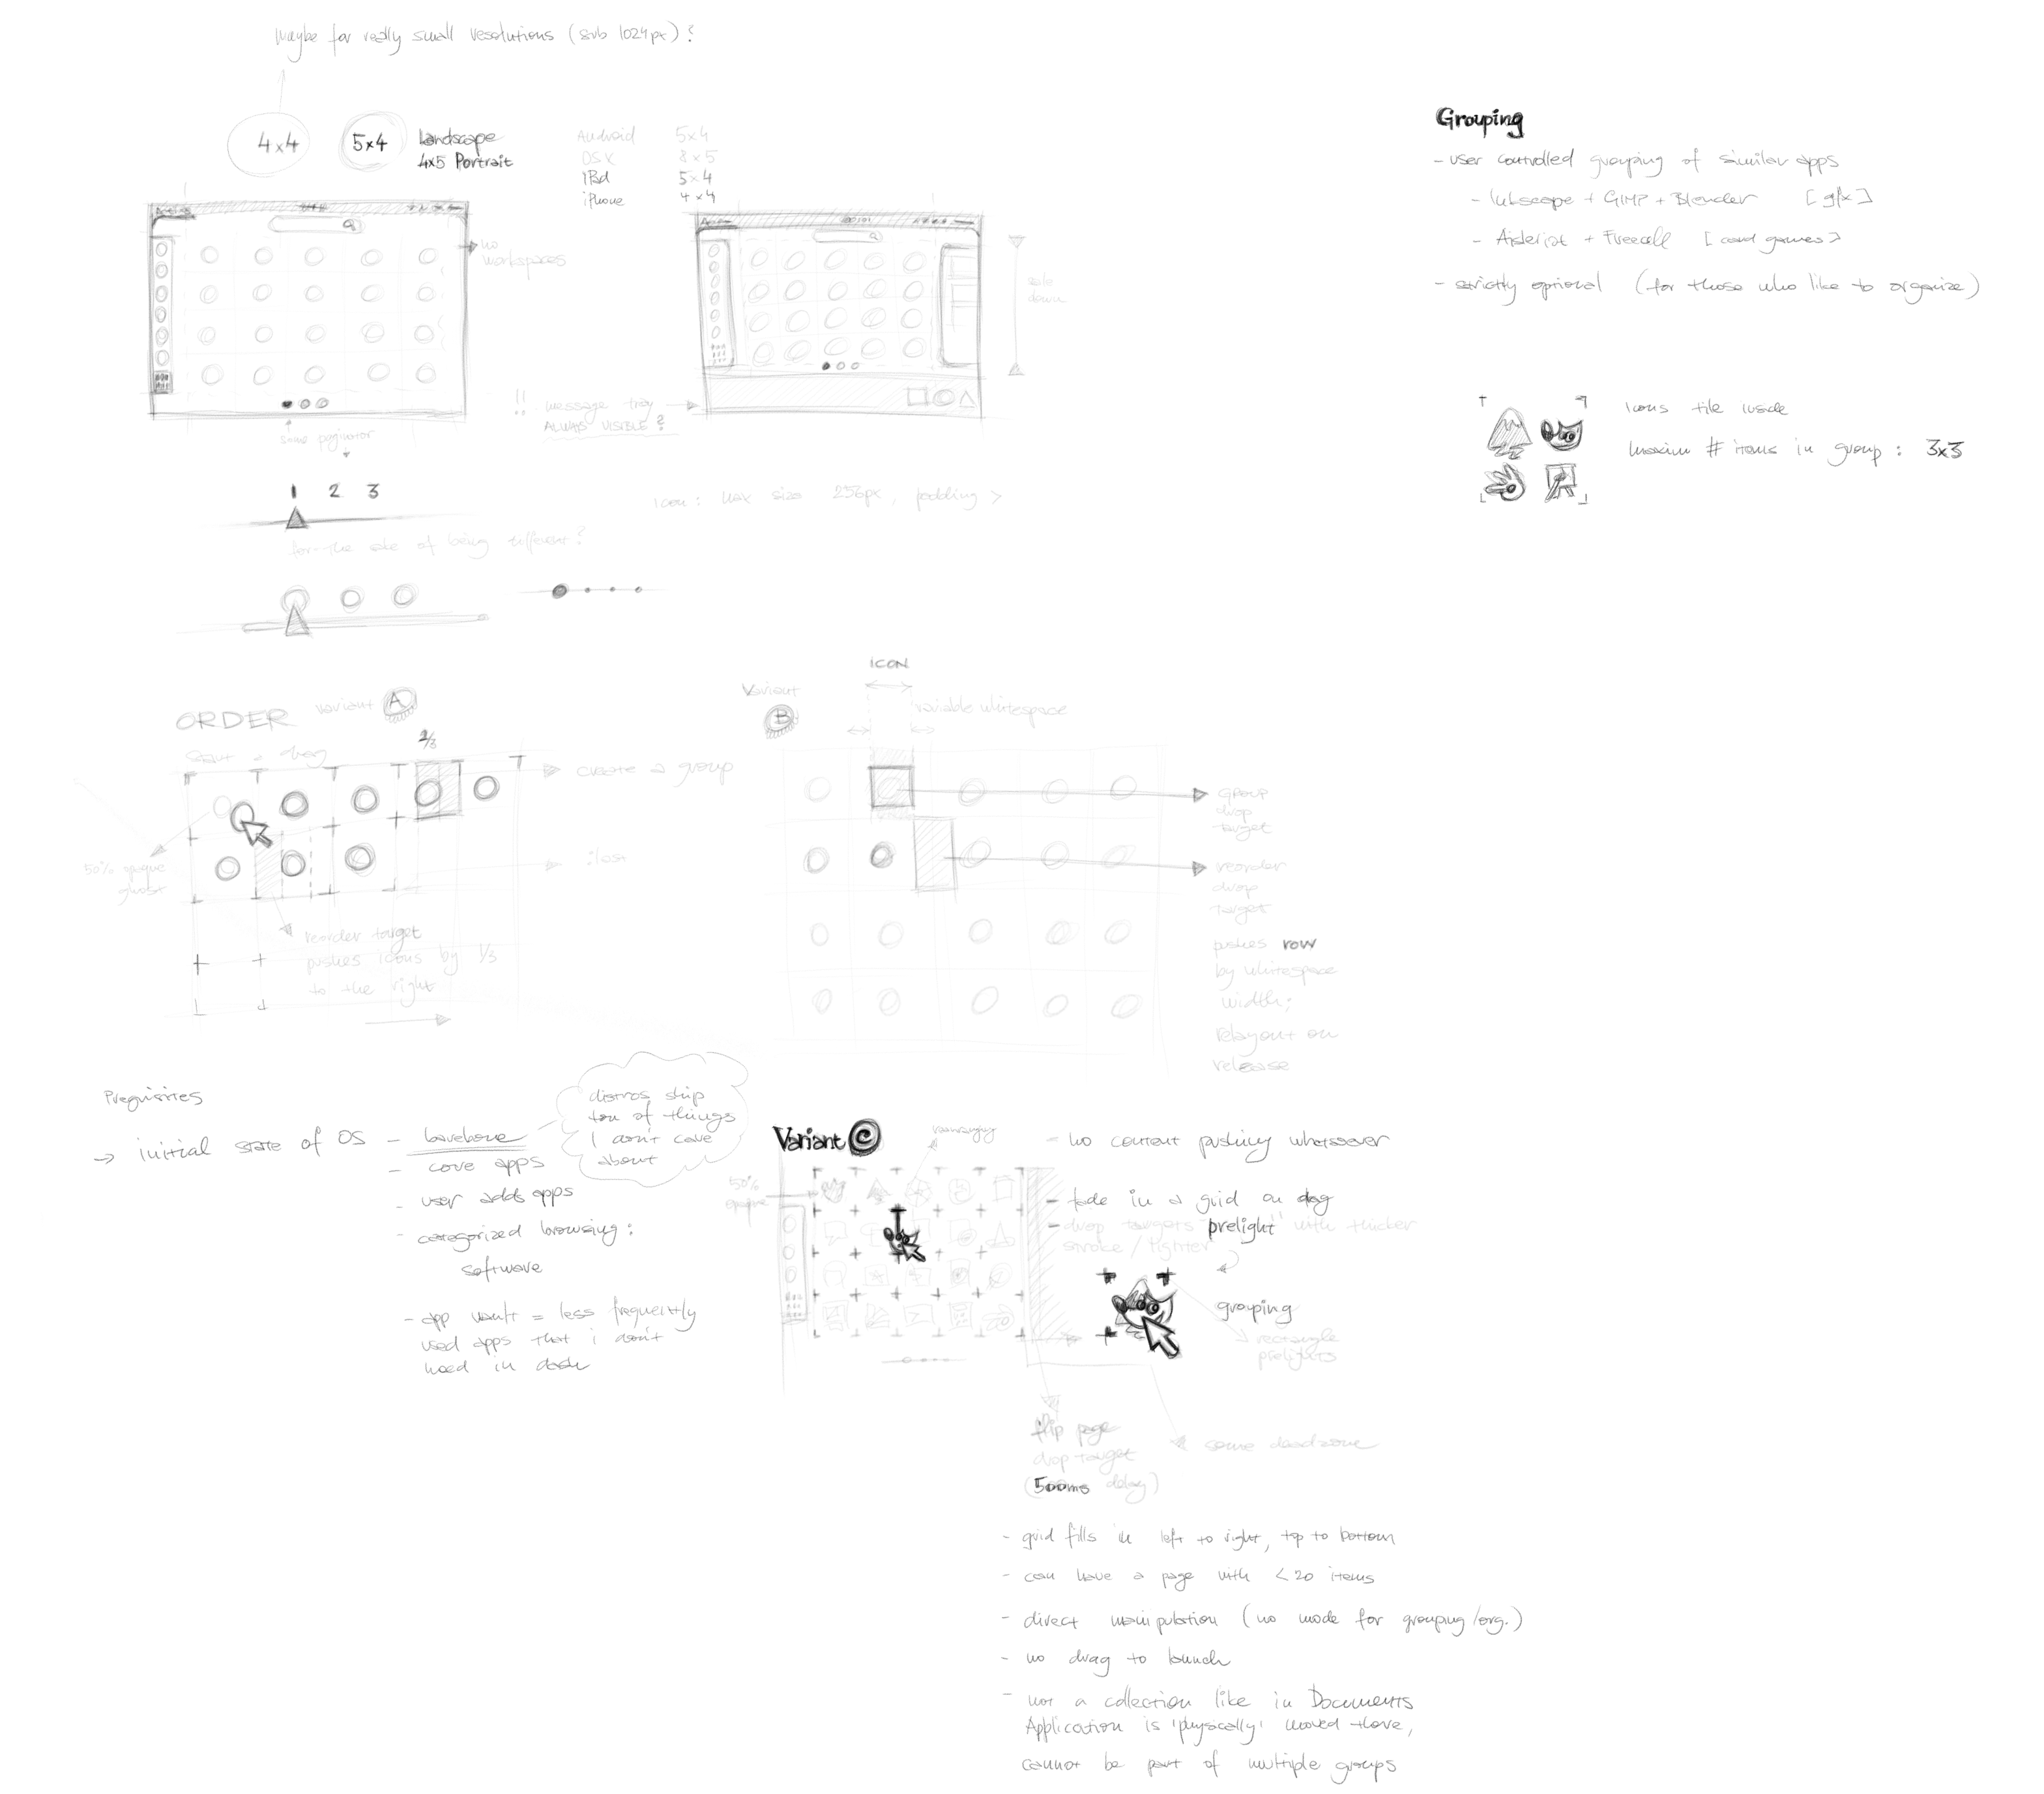 Maybe for really small resolutions (sub 1024px)?
4x4
5x4
Landscape
4x5 Portrait
Android 5x4
OSX 8x5
iPad 5x4
iPhone 4x4
no
workspaces
scale
down
!! message tray
ALWAYS VISIBLE?
some paginator
1 2 3
for the sake of being different?
icon: max size 256px, padding >
Grouping
- user controlled grouping of similar apps
- Inkscape + GIMP + Blender [gfx]
- Aisleriot + Freecell [card games]
- strictly optional (for those who like to organize)
Icons tile inside
maxim # items in group: 3x3
ORDER variant A
start a drag
2/3
create a group
50% opaque
ghost
reorder target
pushes icons by 1/3
to the right
Variant
B
ICON
variable whitespace
group
drop
target
reorder
drop
target
pushes row
by whitespace
width;
relayout on
release
Prequisities
→ initial state of OS - barebone
- core apps
- user adds apps
- categorized browsing:
software
- app vault = less frequently
used apps that i don't
need in dash
distros ship
ton of things
I don't care
about
Variant C
rearranging
50%
opaque
- no content pushing whatsoever
- fade in a grid on drag
- drop targets 'prelight' with thicker
stroke / lighter
grouping
rectangle
prelights
flip page
drop target
(500ms delay)
some deadzone
- grid fills in left to right, top to bottom
- can have a page with <20 items
- direct manipulation (no mode for grouping/org.)
- no drag to launch
- not a collection like in Documents
Application is 'physically' moved there,
cannot be part of multiple groups